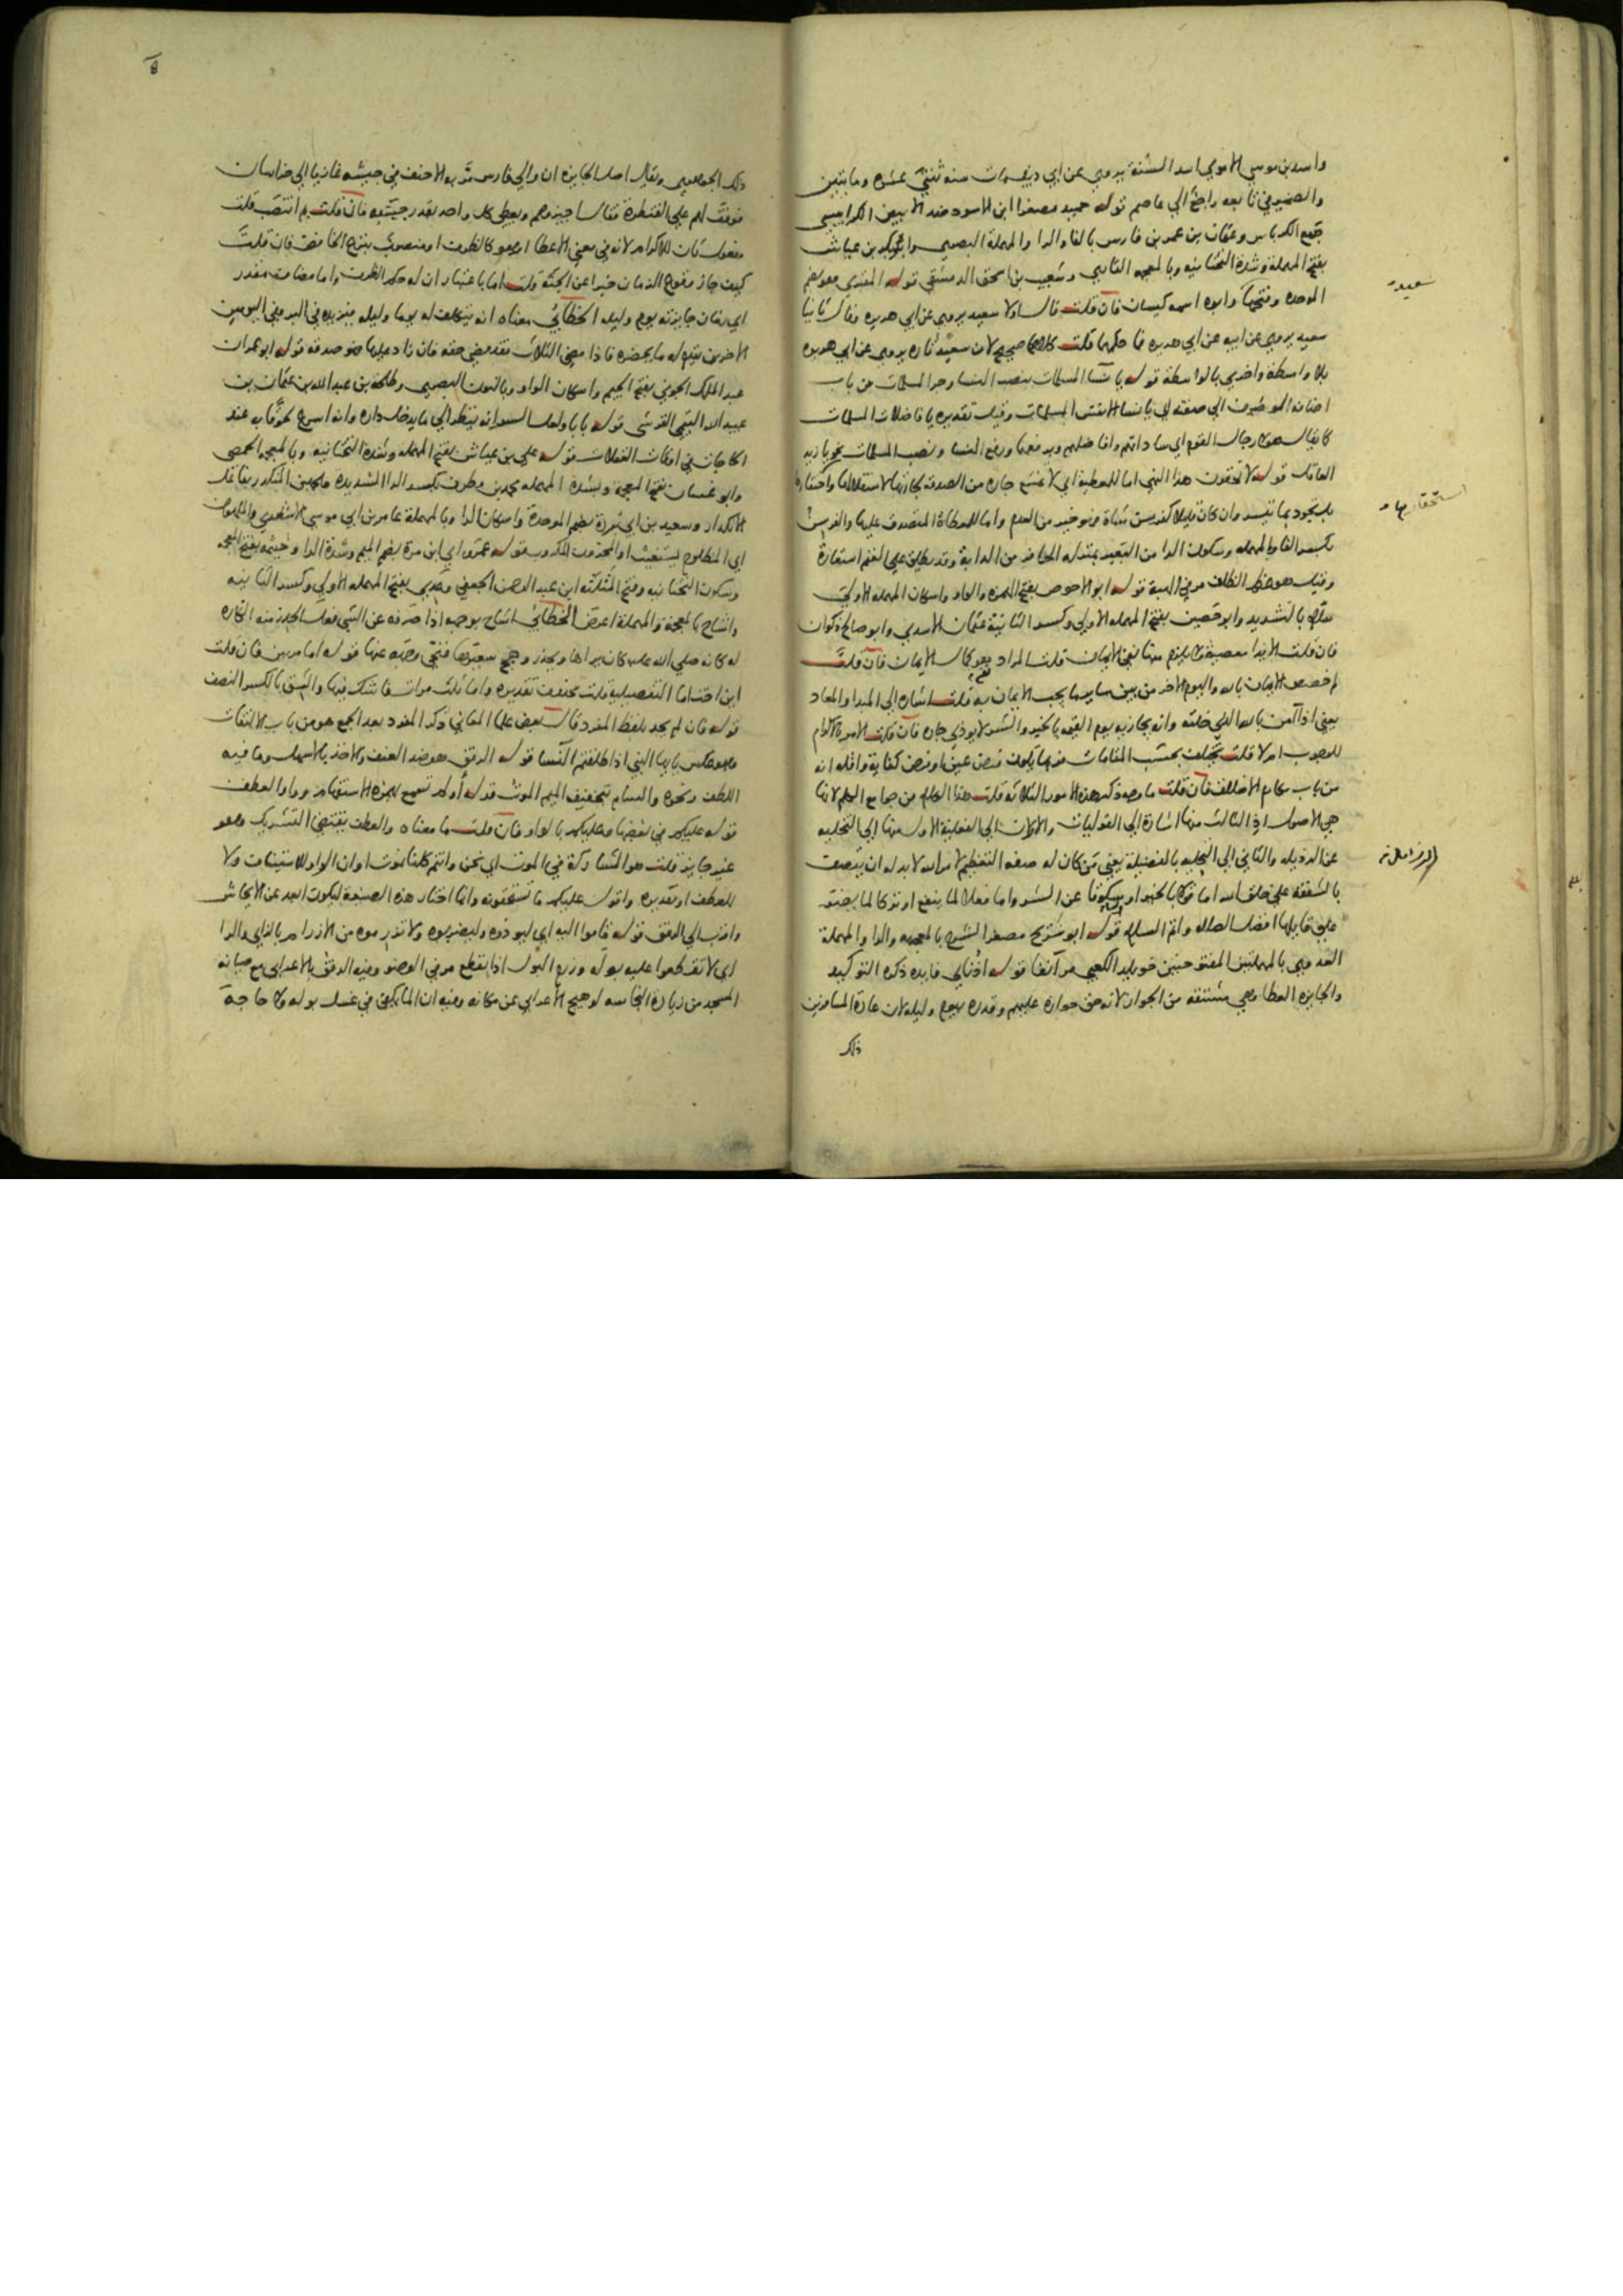 واسد بن موسي الاموي اسد السنة يروي عن ابي ذيب مات سنه ثنتي عشره ومايتين
قوله حميد مصغرا ابن الاسود ضد الابيض الكرابيسي
جمع الكرباس وعثمان بن عمر بن فارس بالفا والرا والمهملة البصري وابو بكر بن عياش
بفتح المهملة وشدة التحتانيه وبالمعجمه القاري وشعيب بن اسحق الدمشقي قوله المقبري هو بضم
الموحده وفتحها وابوه اسمه كيسان فان قلت قال اولا سعيد يروي عن ابي هريره وقال ثانيا
سعيد يروي عن ابيه عن ابي هريره فما حكمهما قلت كلاهما صحيح لان سعيد تاره يروي عن ابي هريره
بلا واسطة واخري بالواسطة قوله يا نسا المسلمات بنصب النسا وجر المسلمات من باب
اضافه الموصوف الي صفته اي يا نسا الانفس المسلمات وقيل تقديره يا فاضلات المسلمات
كما يقال هولا رجال القوم اي ساداتهم وافاضلهم وبرفعها ورفع النسا ونصب المسلمات نحو يا زيد
العاقل قوله لا تحقرن هذا النهي اما للمعطية اي لا تمتنع جاره من الصدقه لجارتها لاستقلالها واحتقارها
بل تجود بما تيسر وان كان قليلا كفرسن شاة فهو خير من العدم واما للمعطاة المتصدق عليها والفرسن
بكسر الفا والمهمله وسكون الرا من البعير بمنزله الحافر من الدابة وقد يطلق علي الغنم استعارة
وقيل هو عظم الظلف مر في الهبة قوله ابو الاحوص بفتح الهمزه والواو واسكان المهمله الاولي
سلام بالتشديد وابو حصين بفتح المهمله الاولي وكسر الثانية عثمان الاسدي وابو صالح ذكوان
فان قلت الايذا معصية ولا يلزم منها نفي الايمان قلت المراد نفي كمال الايمان فان قلت
لم خصص الايمان بالله واليوم الاخر من بين ساير ما يجب الايمان به قلت اشاره الي المبدا والمعاد
يعني اذا آمن بالله الذي خلقه وانه يجازيه يوم القيمه بالخير والشر لا يوذي جاره فان قلت الامر بالاكرام
للوجوب ام لا قلت يختلف بحسب المقامات فربما يكون فرض عين او فرض كفاية واقله انه
من باب مكارم الاخلاق فان قلت ما وجه ذكر هذه الامور الثلاثه قلت هذا الكلام من جوامع الكلم لانها
هي الاصول اذ الثالث منها اشارة الي القوليات والاولان الي الفعلية الاول منها الي التخليه
عن الرذيله والثاني الي التحليه بالفضيلة يعني من كان له صفه التعظيم لامر الله لا بد له ان يتصف
بالشفقه علي خلق الله اما قولا بالخير او سكوتا عن الشر واما فعلا لما ينفع او تركا لما يضر
علي قايلها افضل الصلاه واتم السلام قوله ابو شريح مصغر الشرح بالمعجمه والرا والمهملة
العدوي بالمهملتين المفتوحتين خويلد الكعبي مر آنفا قوله اذناي فايده ذكره التوكيد
والجايزه العطا وهي مشتقه من الجواز لانه حق جوازه عليهم وقدره بيوم وليله لان عادة المسافرين
ذلك
سعيد
استحقارها
الرذايل
ذلك الجوهري ويقال اصل الجايزه ان والي فارس مر به الاحنف في جيشه غازيا الي خراسان
فوقف لهم علي القنطرة فقال اجيزوهم ويعطي كل واحد بقدر جيشه فان قلت بم انتصب قلت
مفعول ثان للاكرام لانه في معني الاعطا او هو كالظرف او منصوب بنزع الخافض فان قلت
كيف جاز وقوع الزمان خبرا عن الجثة قلت اما باعتبار ان له حكم الظرف واما مضاف مقدر
اي زمان جايزته يوم وليله الخطابي معناه انه يتكلف له يوما وليله فيزيده في البر وفي اليومين
الاخرين يقدم له ما يحضره فاذا مضي الثلاث فقد مضي حقه فان زاد عليها فهو صدقه قوله ابو عمران
عبد الملك الجوني بفتح الجيم واسكان الواو وبالنون البصري وطلحة بن عبد الله بن عثمان بن
عبيد الله التيمي القرشي
قوله علي بن عياش بفتح المهمله وشدة التحتانيه وبالمعجمه الحمصي
وابو غسان بفتح المعجمة وشدة المهمله محمد بن مطرف بكسر الرا الشديده
وسعيد بن ابي بردة بضم الموحدة واسكان الرا وبالمهملة عامر بن ابي موسي الاشعري والملهوف
اي المظلوم يستغيث او المحزون المكروب قوله عمرو اي ابن مرة بضم الميم وشدة الرا وخيثمه بفتح المعجمه
وسكون التحتانيه وفتح المثلثه ابن عبد الرحمن الجعفي وعدي بفتح المهمله الاولي وكسر الثانيه
واشاح بالمعجمة والمهملة اعرض الخطابي اشاح بوجهه اذا صرفه عن الشي فعل الحذر منه الكاره
له كانه صلي الله عليه كان يراها ويحذر وهج سعيرها فنحي وجهه عنها قوله اما مرتين فان قلت
اين اخت اما التفصيلية قلت محذوف تقديره واما ثلاث مرات فاشك فيها والشق بالكسر النصف
قوله فان لم يجد بلفظ المفرد قال بعض علما المعاني ذكر المفرد بعد الجمع هو من باب الالتفات
وهو عكس يا ايها النبي اذا طلقتم النسا قوله الرفق هو ضد العنف والاخذ بالاسهل وما فيه
اللطف ونحوه والسام بتخفيف الميم الموت قوله أولم تسمع بهمزه الاستفهام وواو العطف
قوله عليكم في بعضها وعليكم بالواو فان قلت ما معناه والعطف يقتضي التشريك وهو
غير جايز قلت هو المشاركة في الموت اي نحن وانتم كلنا نموت او ان الواو للاستيناف ولا
للعطف او تقديره واقول عليكم ما تستحقونه وانما اختار هذه الصيغة ليكون ابعد عن الايحاش
واقرب الي الرفق قوله قاموا اليه اي ليوذوه وليضربوه ولا تزرموه من الازرام بالزاي والرا
اي لا تقطعوا عليه بوله وزرم البول اذا انقطع مر في الوضو وفيه الرفق بالاعرابي مع صيانه
المسجد من زيادة النجاسه لو هيج الاعرابي عن مكانه وفيه ان الما يكفي في غسل بوله ولا حاجة